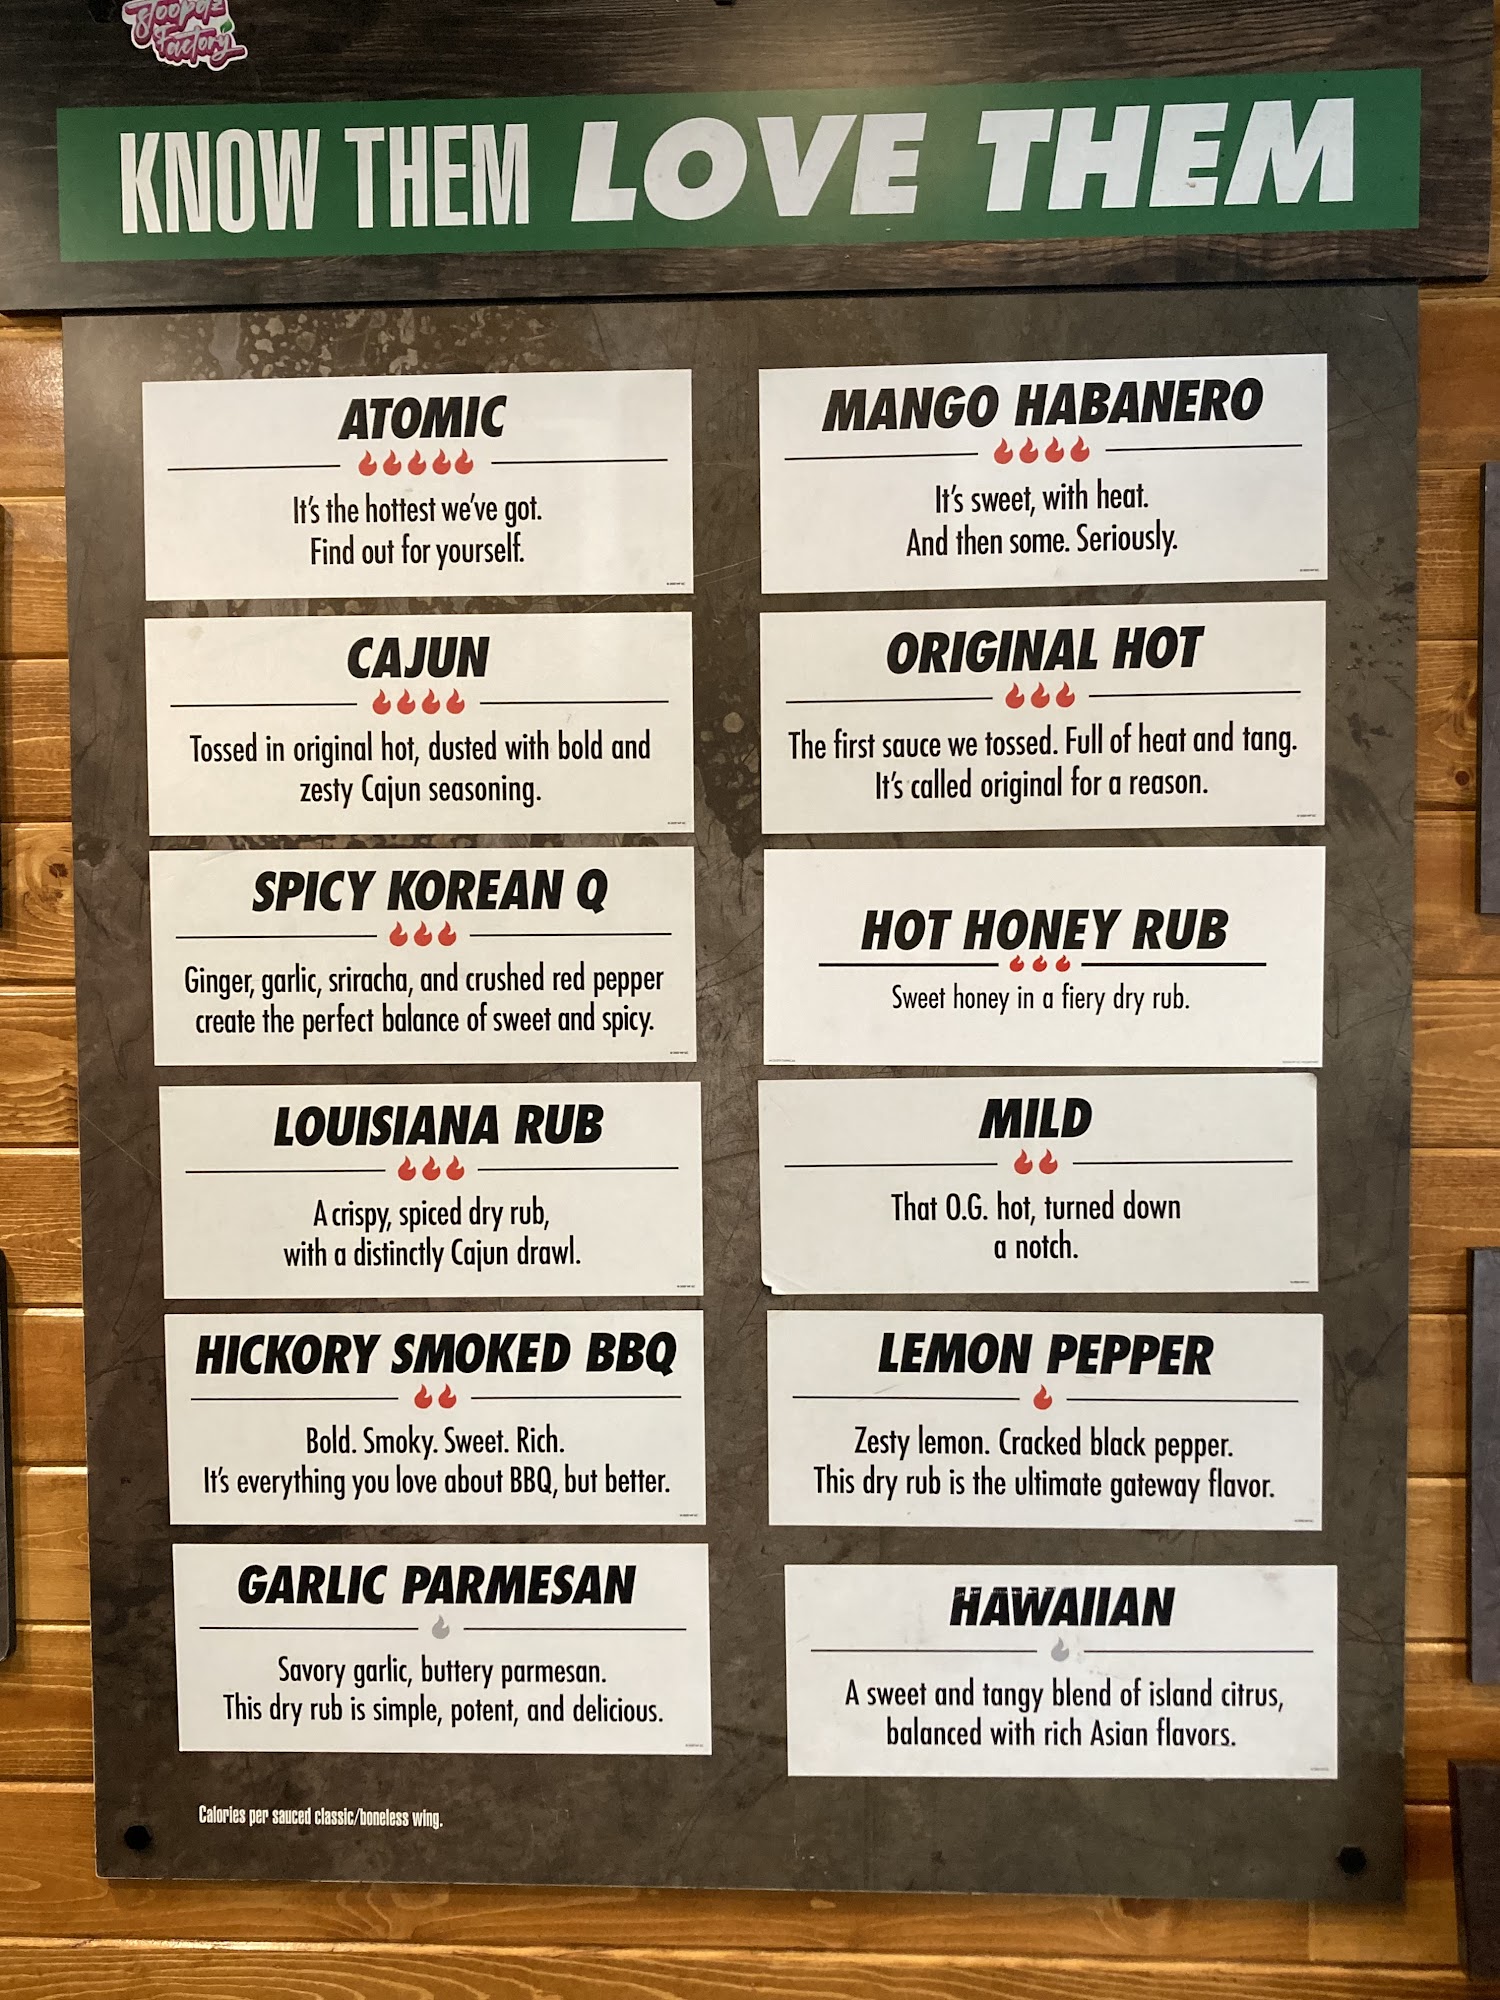 Factory
KNOW THEM LOVE THEM
ATOMIC
It's the hottest we've got.
Find out for yourself.
MANGO HABANERO
It's sweet, with heat.
And then some. Seriously.
CAJUN
Tossed in original hot, dusted with bold and
zesty Cajun seasoning.
ORIGINAL HOT
The first sauce we tossed. Full of heat and tang.
It's called original for a reason.
SPICY KOREAN Q
Ginger, garlic, sriracha, and crushed red pepper
create the perfect balance of sweet and spicy.
HOT HONEY RUB
Sweet honey in a fiery dry rub.
LOUISIANA RUB
A crispy, spiced dry rub,
with a distinctly Cajun drawl.
MILD
That O.G. hot, turned down
a notch.
HICKORY SMOKED BBQ
Bold. Smoky. Sweet. Rich.
It's everything you love about BBQ, but better.
LEMON PEPPER
Zesty lemon. Cracked black pepper.
This dry rub is the ultimate gateway flavor.
GARLIC PARMESAN
Savory garlic, buttery parmesan.
This dry rub is simple, potent, and delicious.
HAWAIIAN
A sweet and tangy blend of island citrus,
balanced with rich Asian flavors.
Calories per sauced classic/boneless wing.